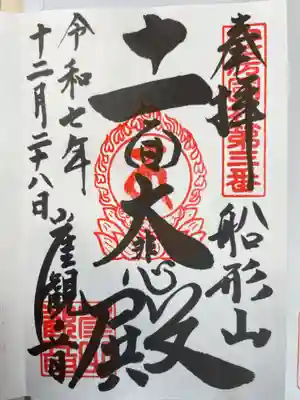 奉拝
第三番
船形山
十一面大悲殿
令和七年
十二月二十八日
崖観音